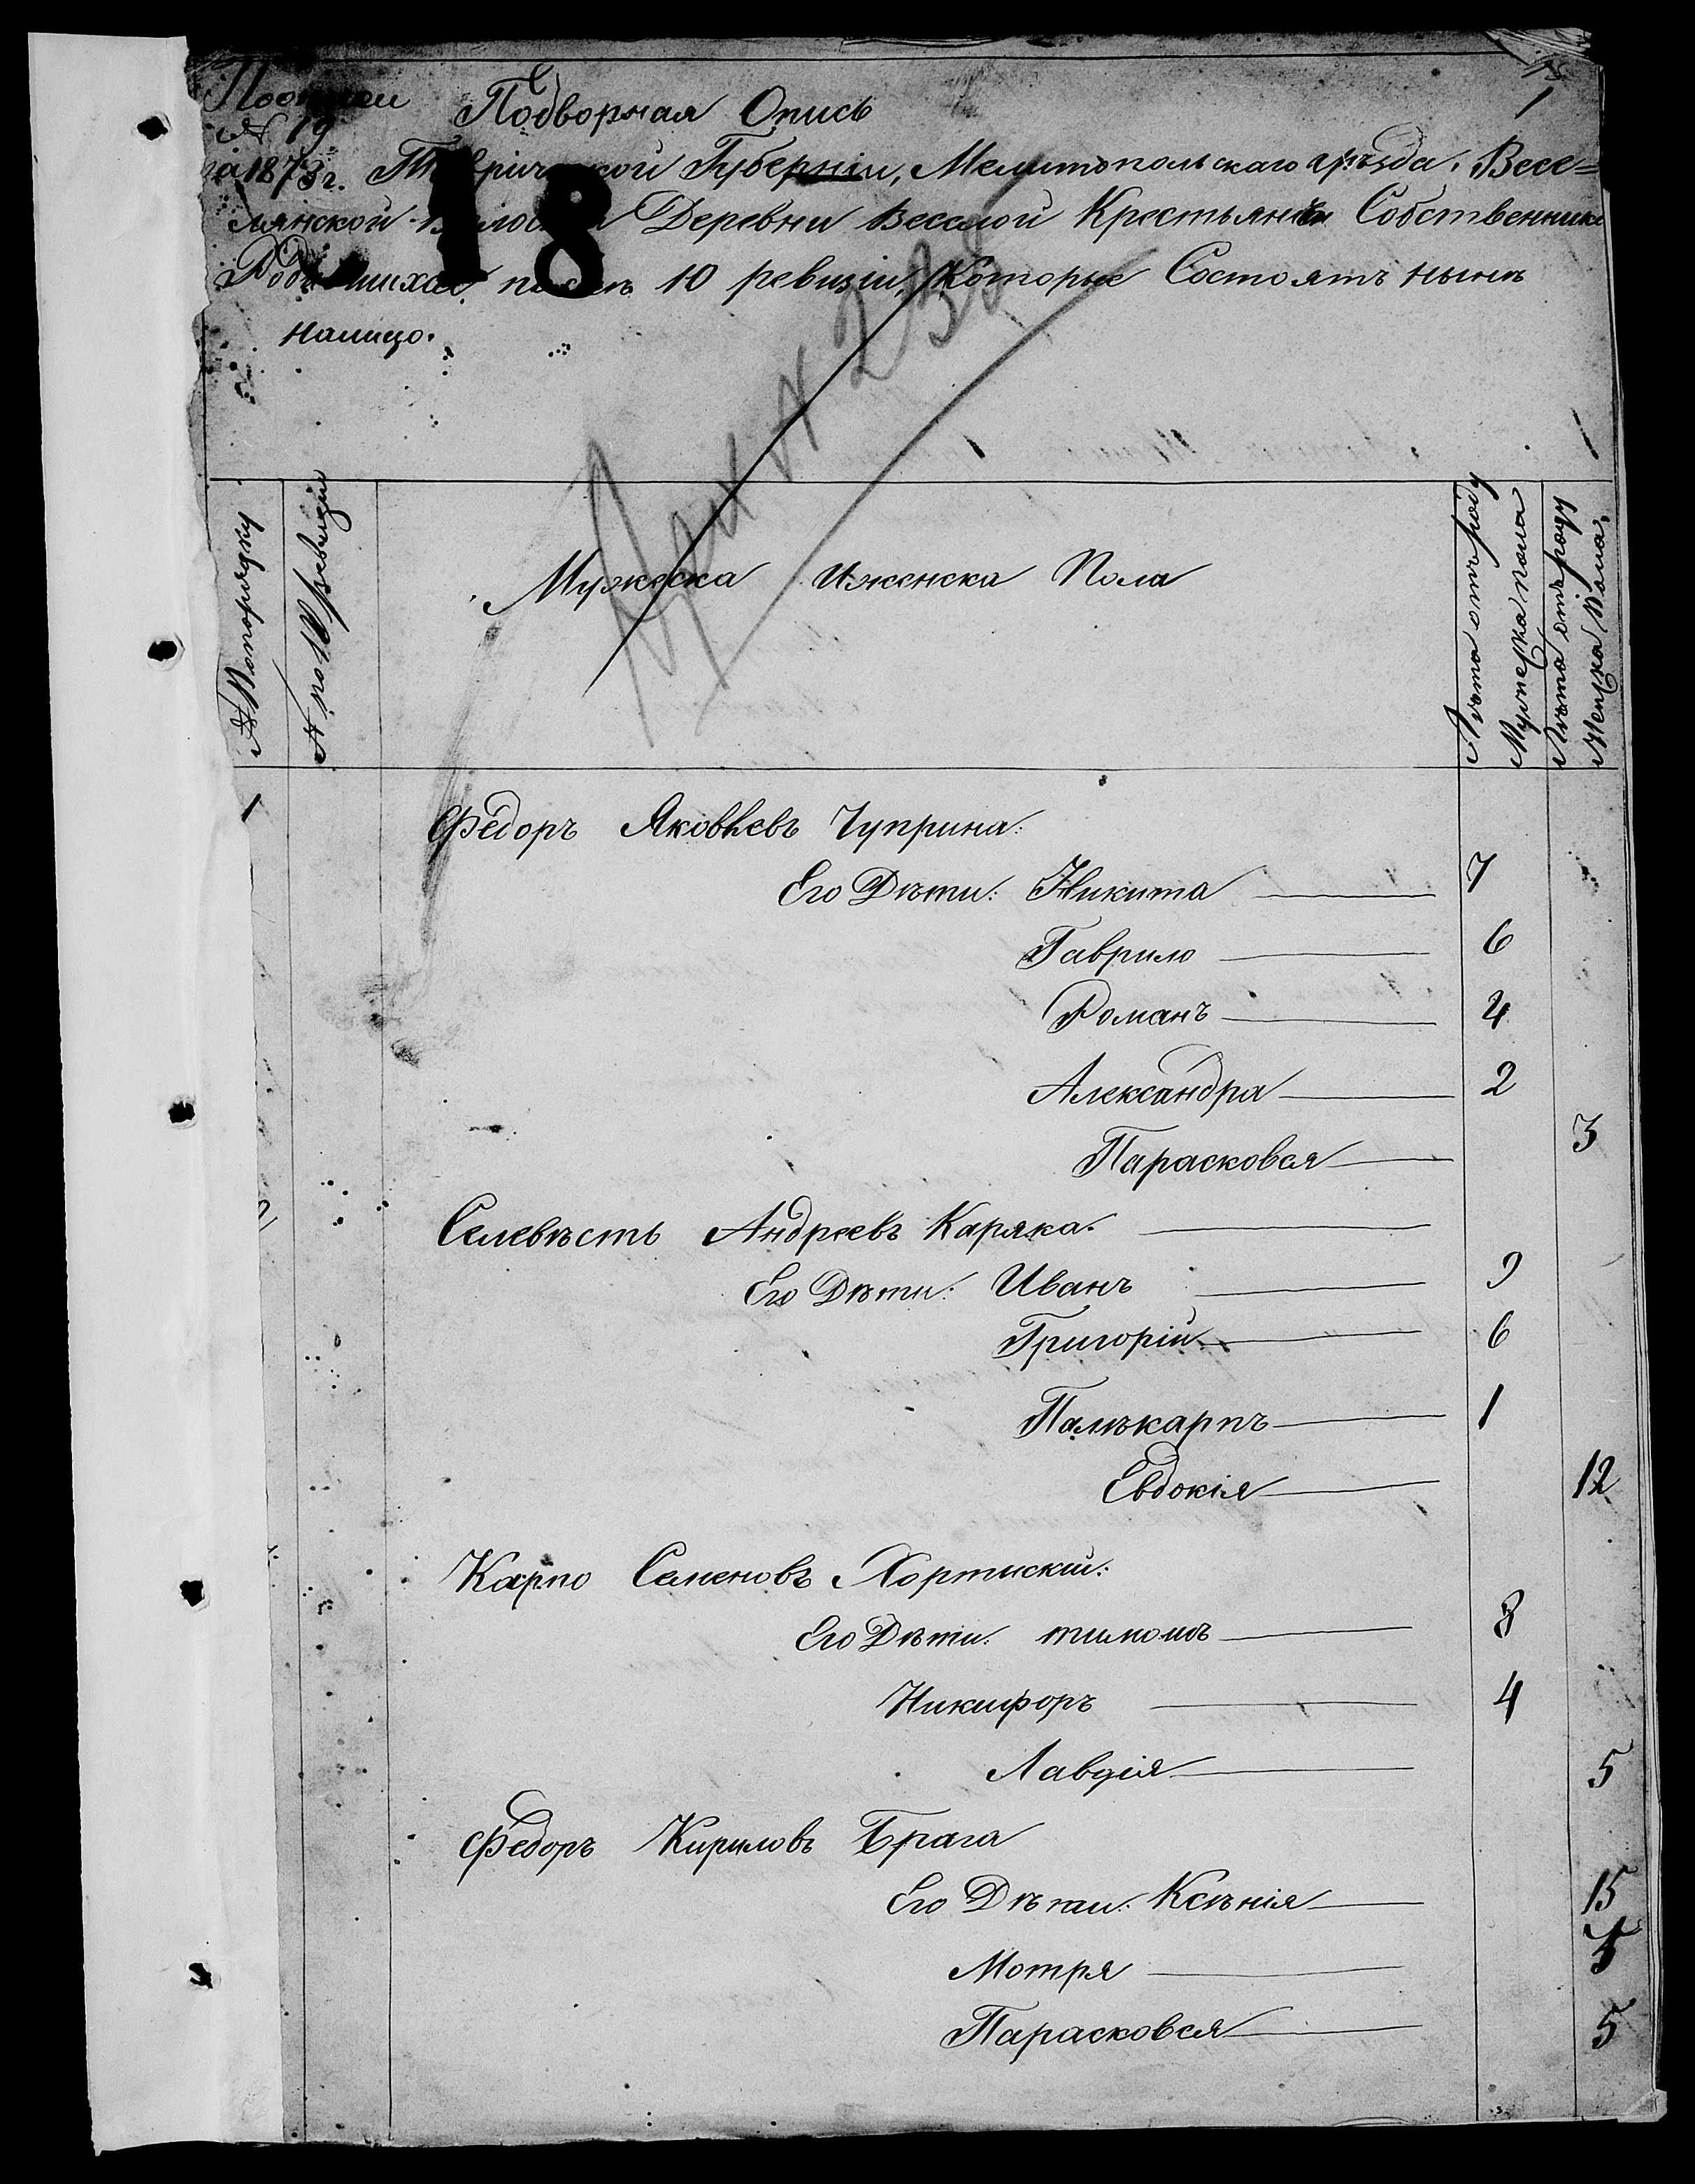 Подворная Опись
1
№ 19
1873 г. Таврической Губерніи, Мелитопольскаго уѣзда, Весе=
лянской Волости Деревни Веселой Крестьянъ Собственник
Родившихся послѣ 10 ревизіи, Которые Состоятъ нынѣ
налицо.
18
№ Попорядку
№ по 10 ревизіи
Мужеска Иженска Пола
Лѣта отъ роду
Мужеска пола
Лѣта отъ роду
Женска Пола
1
Федоръ Яковлевъ Чуприна:
Его Дѣти: Никита 7
Гаврило 6
Романъ 4
Александра 2
Парасковея 3
Селевѣсть Андреевъ Каряка.
Его Дѣти: Иванъ 9
Григорій 6
Палѣкарпъ 1
Евдокія 12
Карпо Семеновъ Хортискій:
Его Дѣти: 8
Никифоръ 4
Лавдія 5
Федоръ Кириловъ Брага
Его Дѣти: Ксѣнія 15
Мотря
Парасковея 5